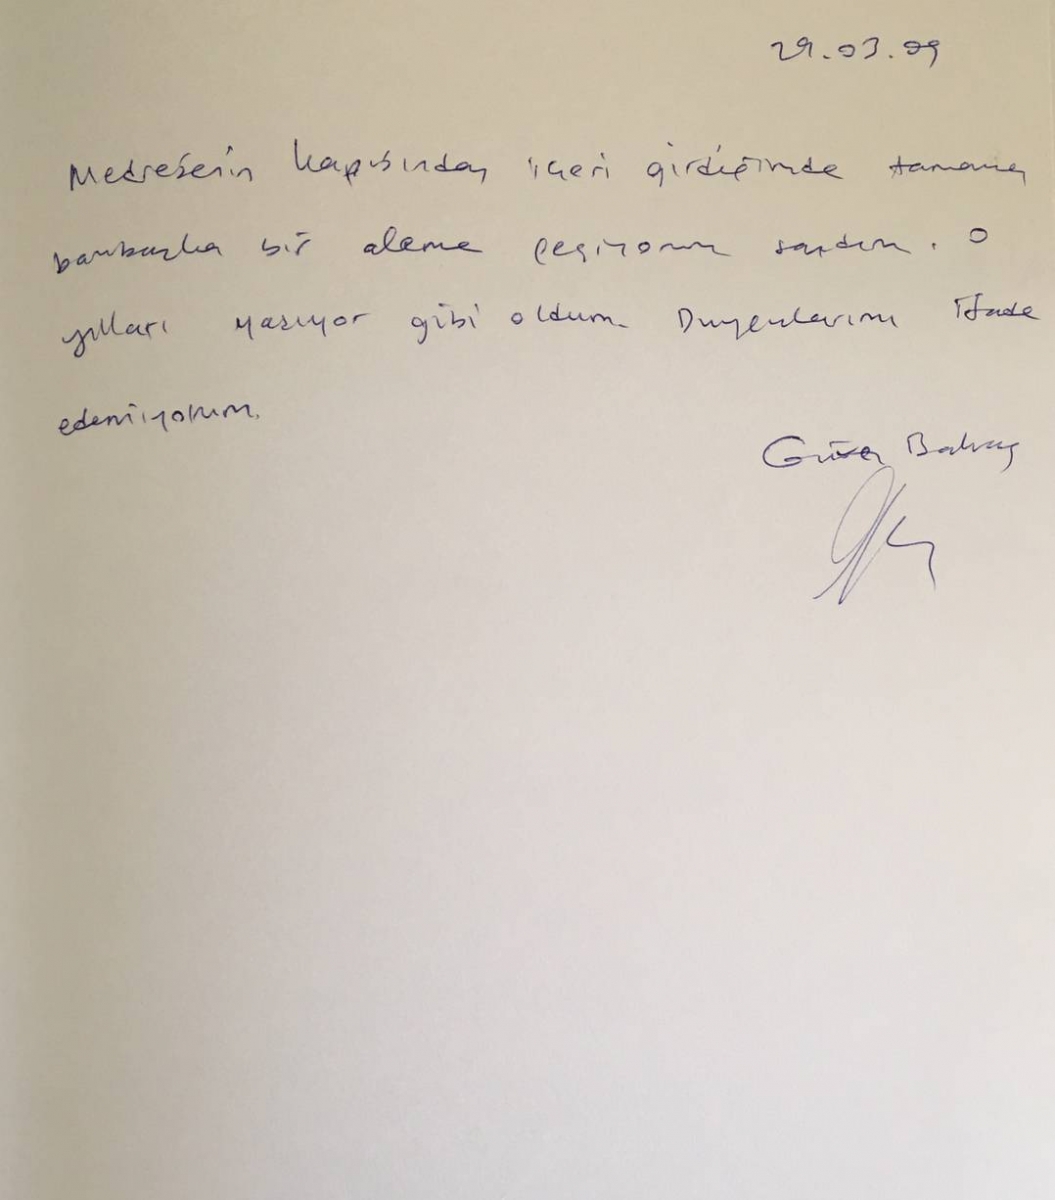 29.03.09
Medresenin kapısından içeri girdiğimde tamamen
bambaşka bir aleme geçiyorum sandım. O
yılları yaşıyor gibi oldum. Duygularımı ifade
edemiyorum.